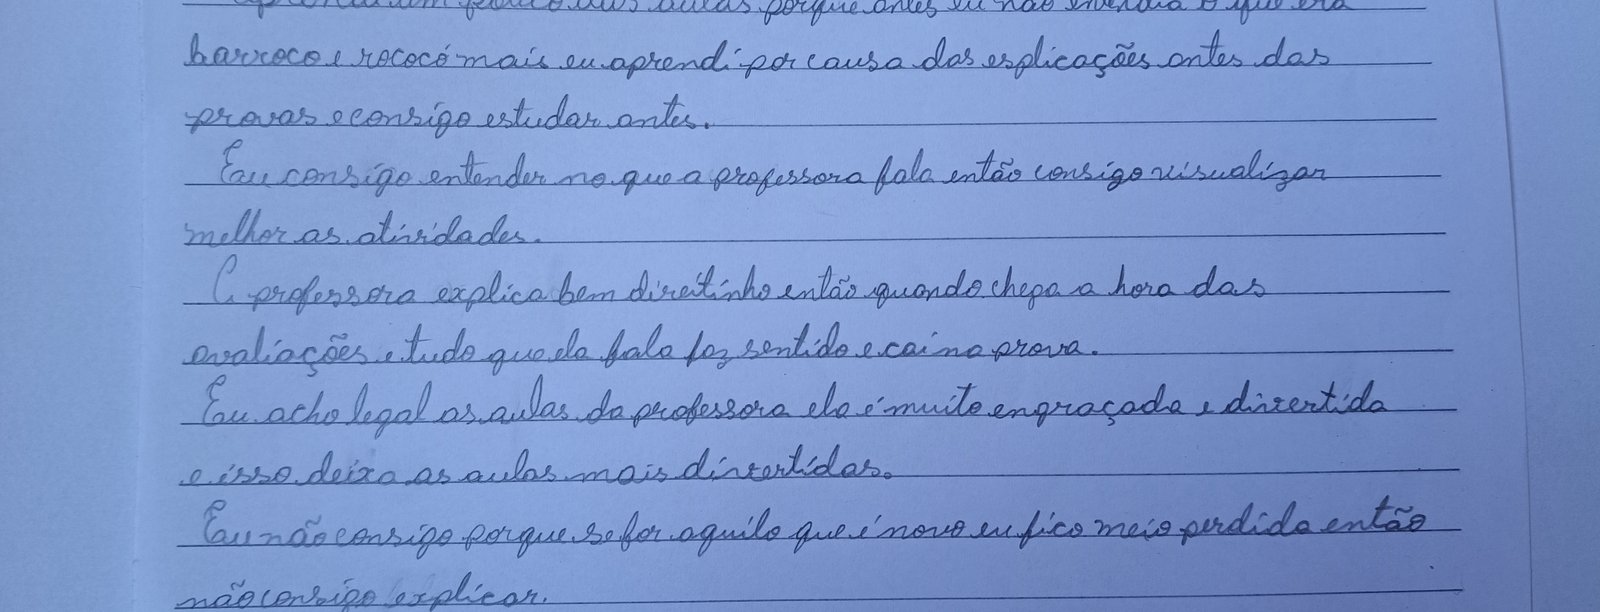 aulas porque antes eu não entendia o que era
barroco e rococó mais eu aprendi por causa das esplicações antes das
provas e consigo estudar antes.
Eu consigo entender no que a professora fala então consigo visualizar
melhor as atividades.
A professora explica bem direitinho então quando chega a hora das
avaliações e tudo que ela fala faz sentido e cai na prova.
Eu acho legal as aulas da professora ela é muito engraçada e divertida
e isso deixa as aulas mais divertidas.
Eu não consigo porque se for aquilo que é novo eu fico meio perdida então
não consigo explicar.